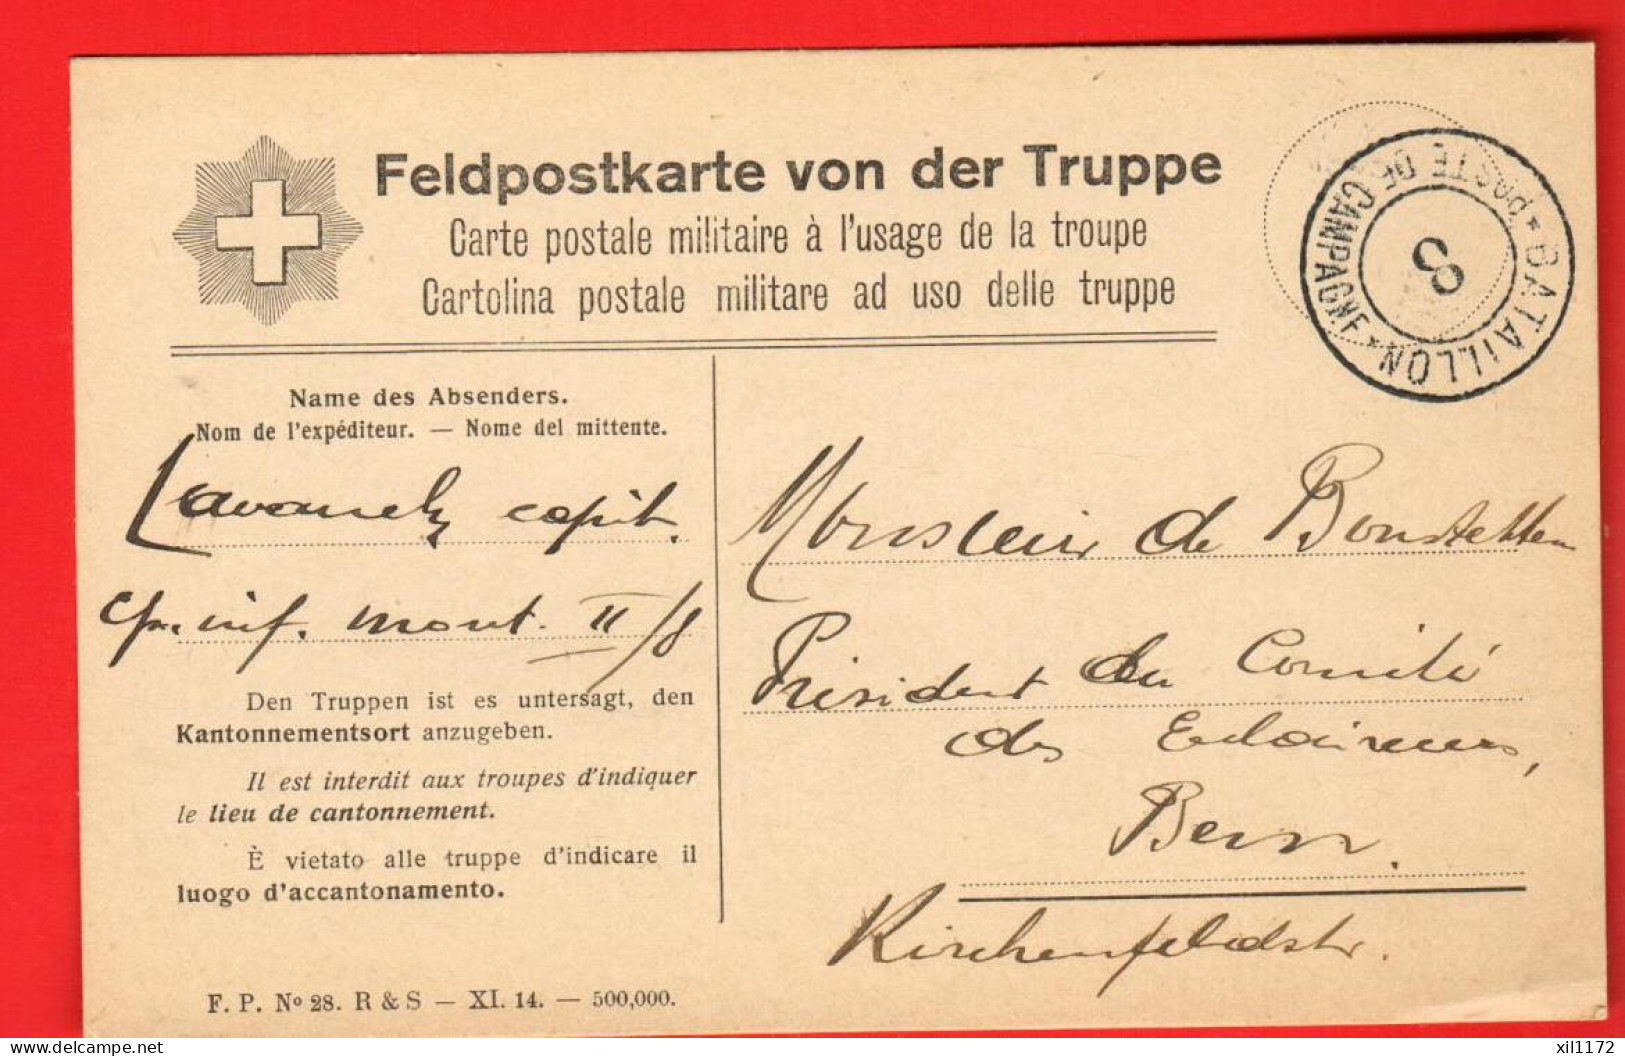 Feldpostkarte von der Truppe
Carte postale militaire à l'usage de la troupe
Cartolina postale militare ad uso delle truppe
* BATAILLON *
POSTE DE CAMPAGNE
8
Name des Absenders.
Nom de l'expéditeur. — Nome del mittente.
Lavanchy capit.
Cp. inf. mont. II/8
Den Truppen ist es untersagt, den
Kantonnementsort anzugeben.
Il est interdit aux troupes d'indiquer
le lieu de cantonnement.
È vietato alle truppe d'indicare il
luogo d'accantonamento.
F. P. No 28. R & S — XI. 14. — 500,000.
Monsieur de Bonstetten
Président du Comité
des Eclaireurs,
Bern.
Kirchenfeldstr.
delcampe.net
xil1172